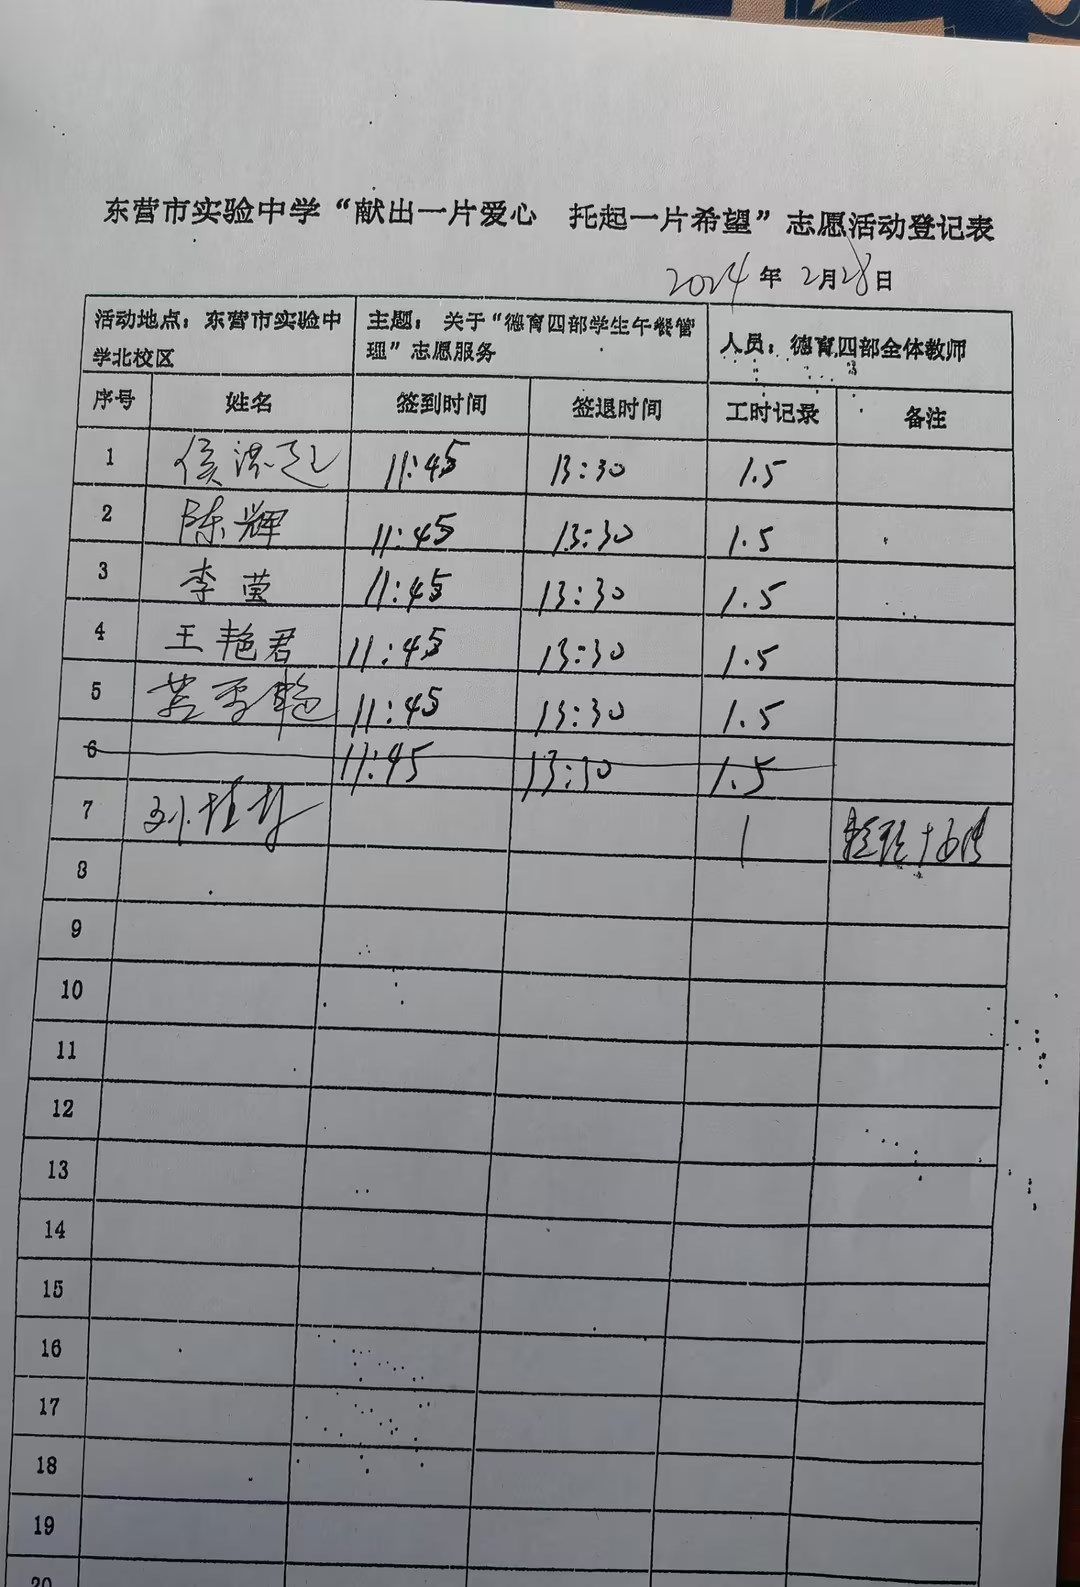 东营市实验中学“献出一片爱心 托起一片希望”志愿活动登记表
2024年2月28日
活动地点：东营市实验中学北校区 主题：关于“德育四部学生午餐管理”志愿服务 人员：德育四部全体教师
序号 姓名 签到时间 签退时间 工时记录 备注
1 侯 11:45 13:30 1.5
2 陈辉 11:45 13:30 1.5
3 李莹 11:45 13:30 1.5
4 王艳君 11:45 13:30 1.5
5 11:45 13:30 1.5
6 11:45 13:30 1.5
7 刘 1
8
9
10
11
12
13
14
15
16
17
18
19
20